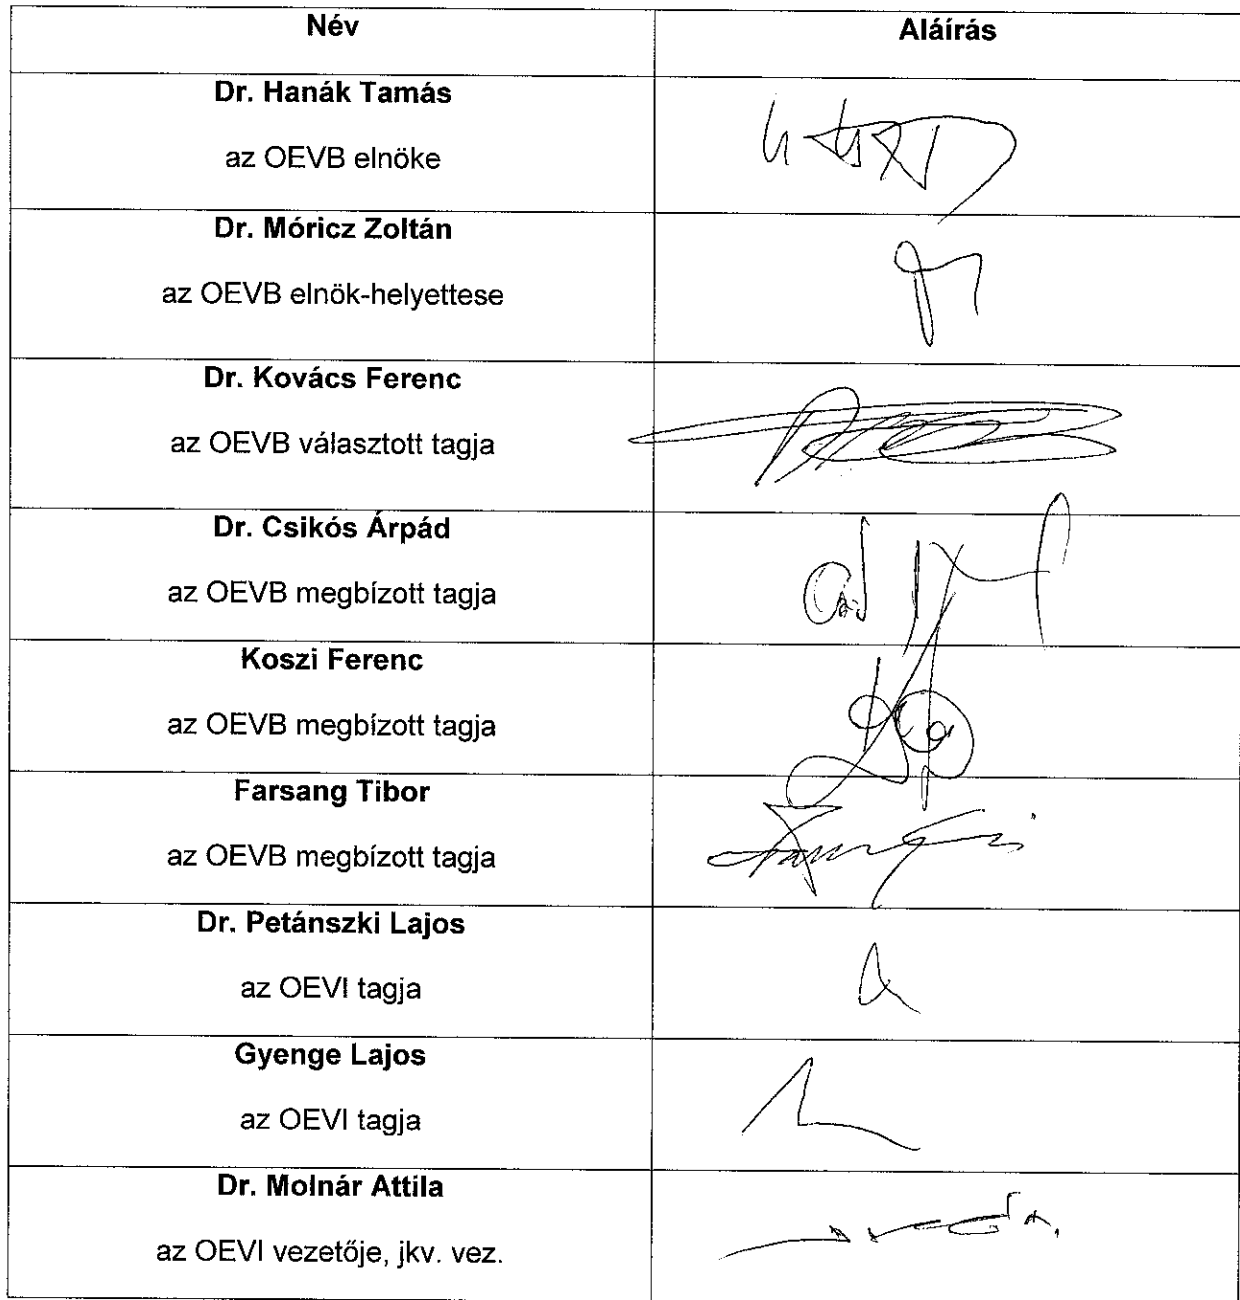 Név Aláírás
Dr. Hanák Tamás
az OEVB elnöke
Dr. Móricz Zoltán
az OEVB elnök-helyettese
Dr. Kovács Ferenc
az OEVB választott tagja
Dr. Csikós Árpád
az OEVB megbízott tagja
Koszi Ferenc
az OEVB megbízott tagja
Farsang Tibor
az OEVB megbízott tagja
Dr. Petánszki Lajos
az OEVI tagja
Gyenge Lajos
az OEVI tagja
Dr. Molnár Attila
az OEVI vezetője, jkv. vez.